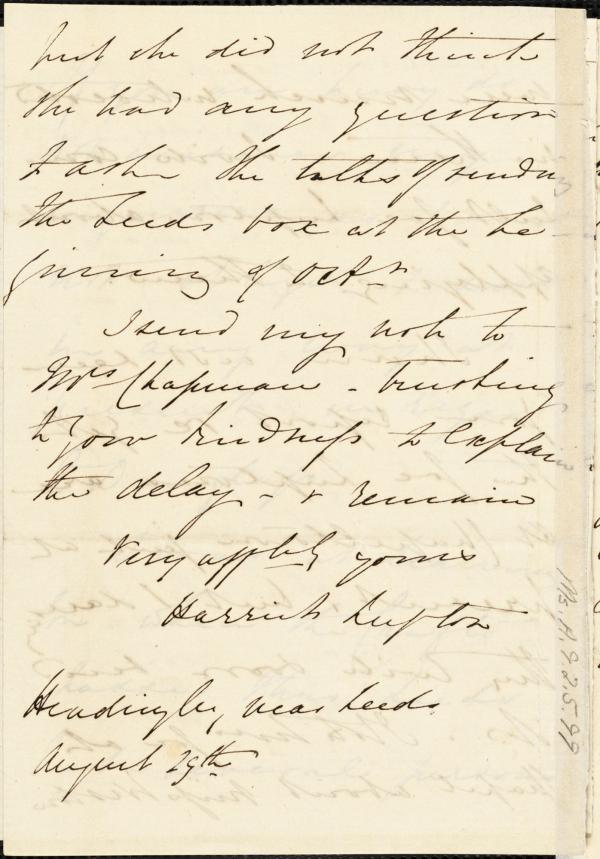 but she did not think
she had any question
to ask. She talks of sending
the Leeds box at the be-
ginning of Octr.
I send my note to
Mrs Chapman - trusting
to your kindness to explain
the delay - & remain
Very affectly yours
Harriet Lupton
Headingley, near Leeds
August 29th
Ms. A. 9. 2. 5. 99